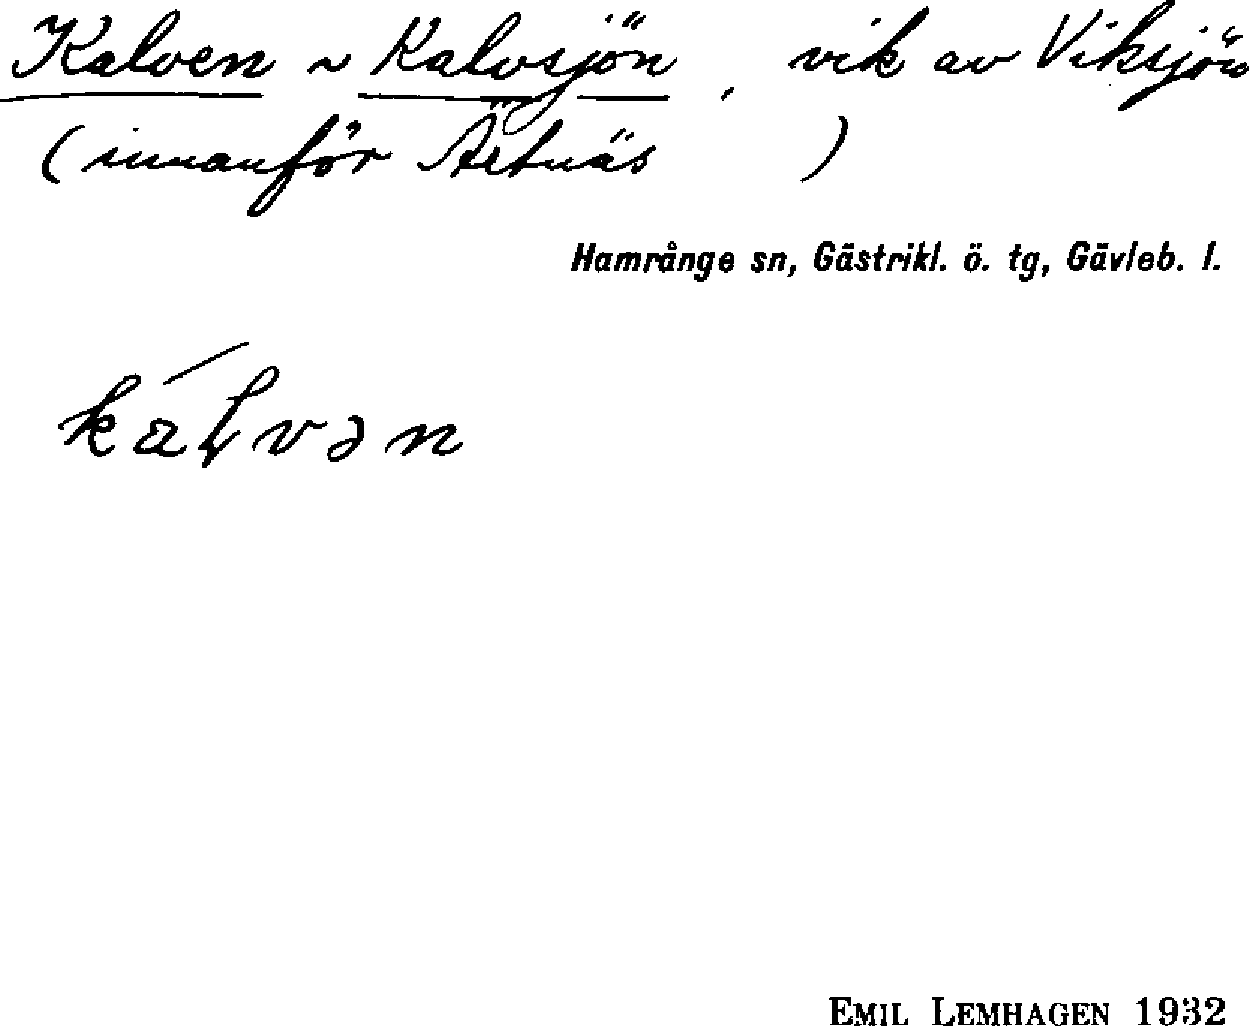 Kalven ~ Kalvsjön, vik av Viksjön
(innanför Ärtnäs )
Hamrånge sn, Gästrikl. ö. tg, Gävleb. l.
kaɫvən
EMIL LEMHAGEN 1932